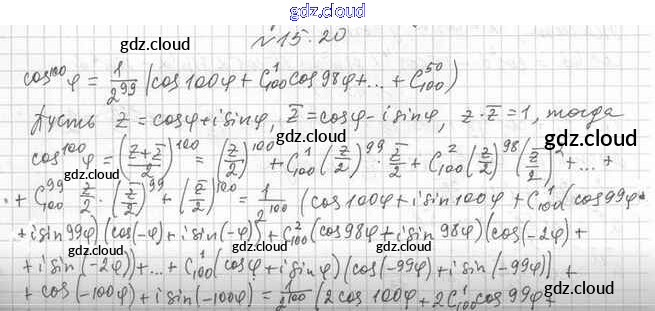 gdz.cloud
N 15.20
gdz.cloud gdz.cloud
cos¹⁰⁰φ = 1/2⁹⁹ (cos 100φ + C¹₁₀₀ cos 98φ + ... + C⁵⁰₁₀₀)
gdz.cloud
Пусть z = cosφ + i sinφ, z̅ = cosφ - i sinφ, z · z̅ = 1, тогда
gdz.cloud gdz.cloud
cos¹⁰⁰φ = ((z+z̅)/2)¹⁰⁰ = (z/2)¹⁰⁰ + C¹₁₀₀ (z/2)⁹⁹ · z̅/2 + C²₁₀₀ (z/2)⁹⁸ (z̅/2)² + ... +
gdz.cloud
+ C⁹⁹₁₀₀ z/2 · (z̅/2)⁹⁹ + (z̅/2)¹⁰⁰ = 1/2¹⁰⁰ (cos 100φ + i sin 100φ + C¹₁₀₀ (cos 99φ +
gdz.cloud gdz.cloud
+ i sin 99φ) (cos(-φ) + i sin(-φ)) + C²₁₀₀ (cos 98φ + i sin 98φ) (cos(-2φ) +
gdz.cloud
+ i sin(-2φ)) + ... + C¹₁₀₀ (cosφ + i sinφ) (cos(-99φ) + i sin(-99φ)) +
gdz.cloud gdz.cloud
+ cos(-100φ) + i sin(-100φ) = 1/2¹⁰⁰ (2 cos 100φ + 2C¹₁₀₀ cos 99φ +
gdz.cloud